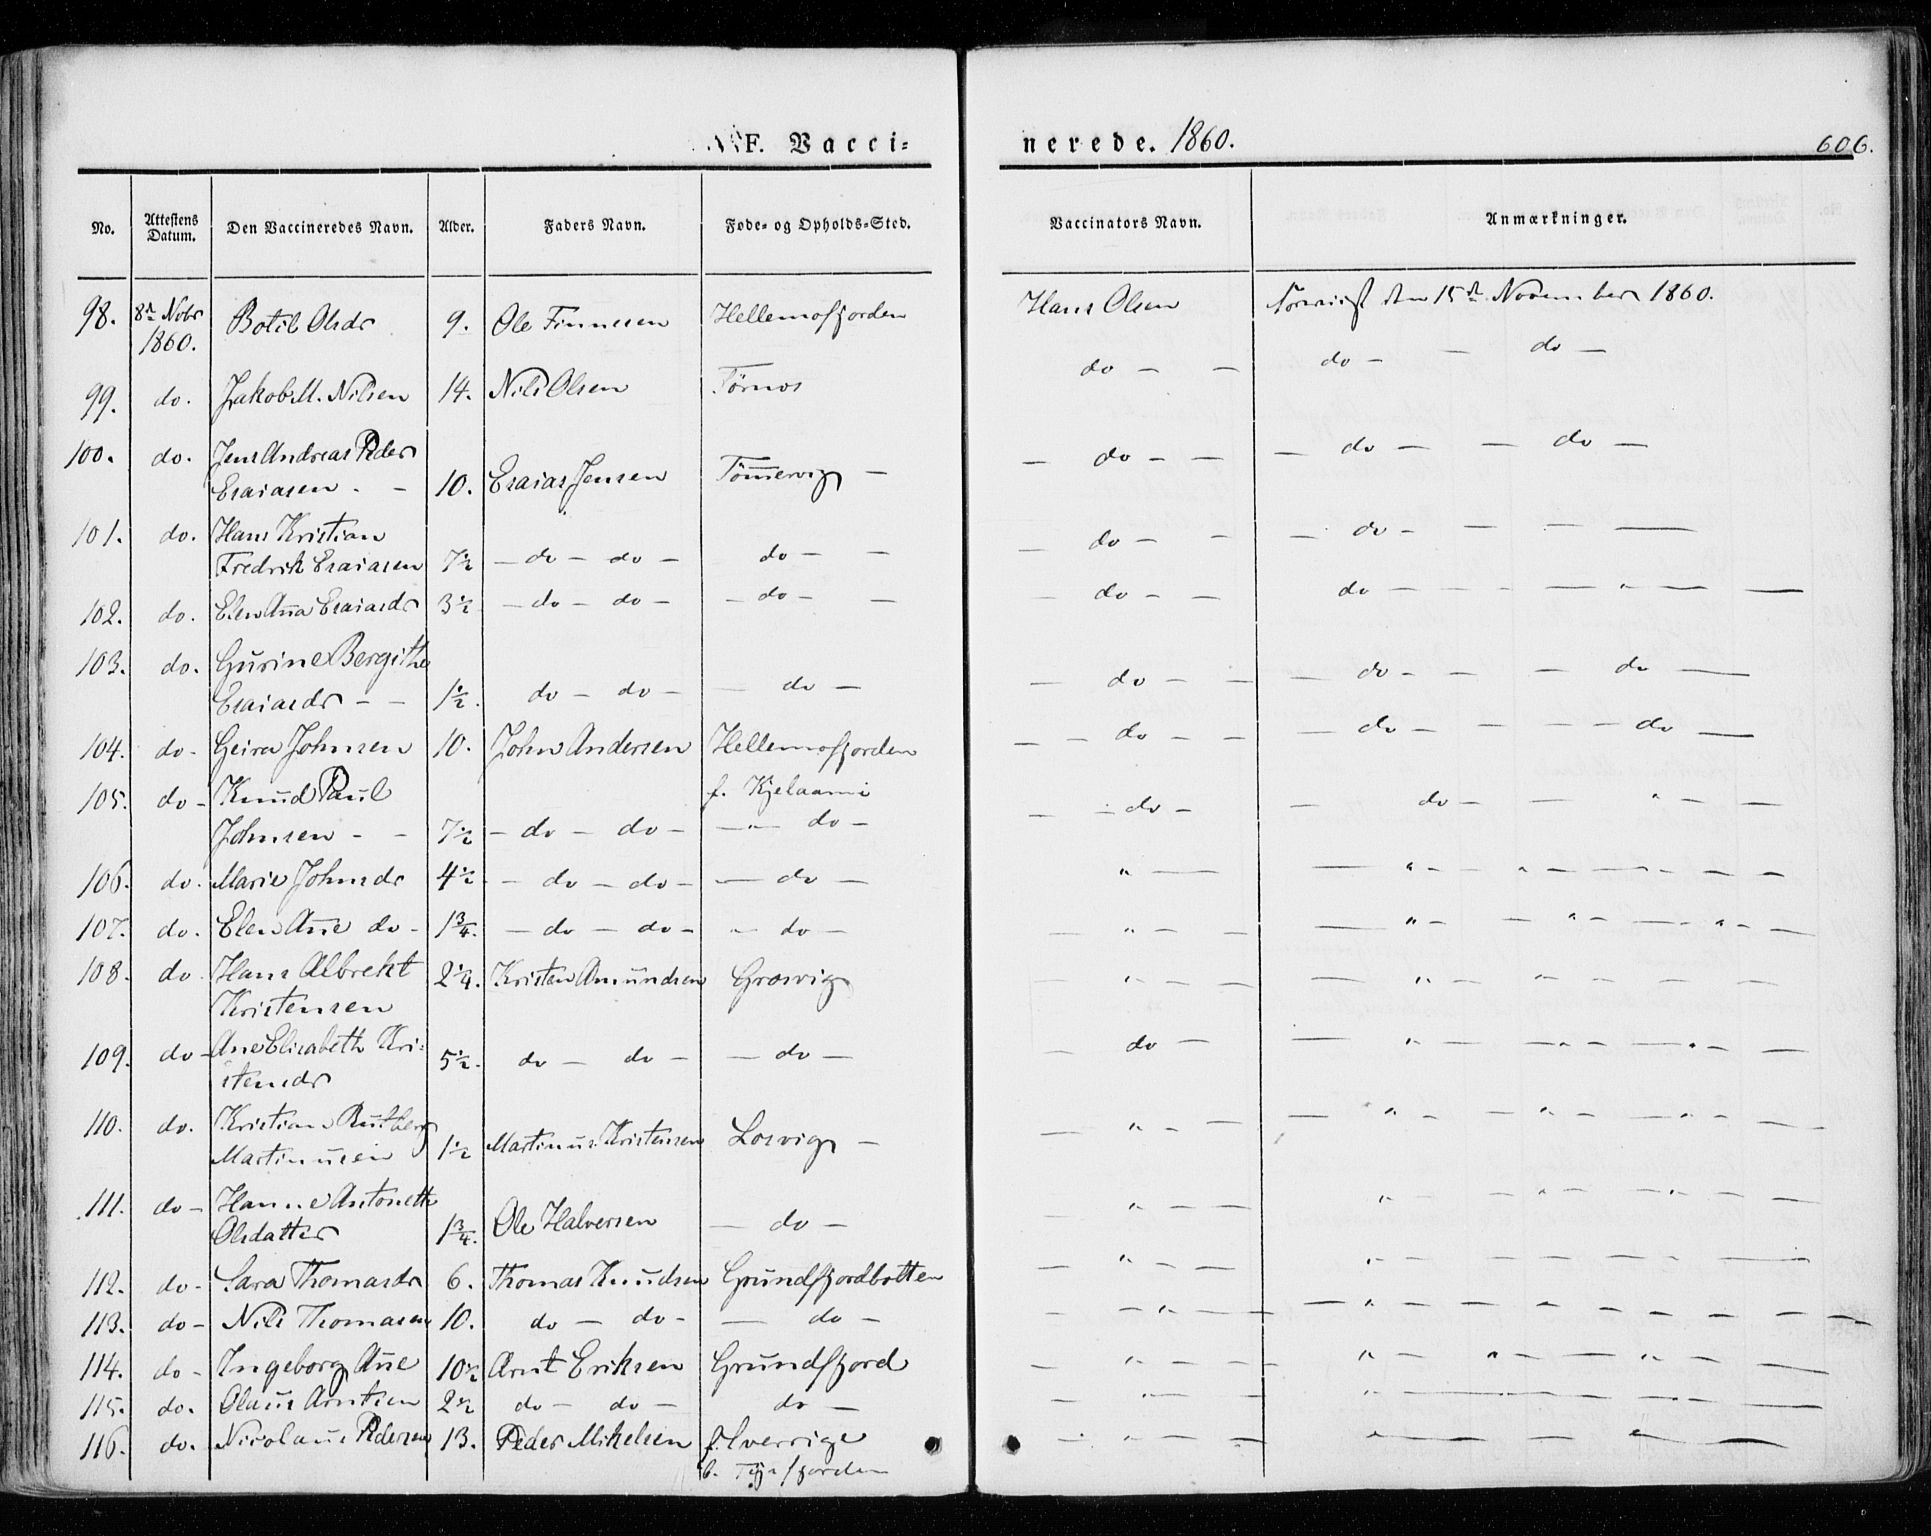 F. Vacci= nerede. 1860. 606.
No. Attestens Datum. Den Vaccineredes Navn. Alder. Faders Navn. Føde= og Opholds=Sted. Vaccinators Navn. Anmærkninger.
98. 8de Nobr 1860. Botil Olsdr 9. Ole Finnesen Hellemofjorden Hans Olsen den 15de November 1860.
99. do. Jakob M. Nilsen 14. Nils Olsen Tørnos do — — do — — do —
100. do. Jens Andreas Peder
Esaiasen . — 10. Esaias Jensen Tömervig — — do — — — do — — do —
101. do. Hans Kristian
Fredrik Esaiasen 7½ — do — do — do — — — do — — — do — — — —
102. do. Elen Ana Esaiasdr 3½ — do — do — — do — — — do — — do — — — — " — —
103. do. Gurine Bergithe
Esaiasdr — — 1½. do — do — — do — — do — — — do — — — do —
104. do — Geira Johnsen 10. John Andersen Hellemofjorden — — do — — — do — — — — do —
105. do — Knud Paul f. Kjelaami
Johnsen — — 7½ — do — do — — " — do — — — do — — do — — " — —
106. do. Marie Johnsdr 4½ — do — do — — do — " — — " — " — — — — —
107. do. Elen Ane do — 1¾. — do — do — " do — — " — — — " — — " — — " — —
108. do. Hans Albrekt 2¼. Kristen Amundsen Grosvig — " — — — " — — " — — — —
Kristensen
109. do — Ane Elisabeth Kri=
stensdr 5½. do — do — — do — — do — — " — — " — — " — —
110. do. Kristian
Martinusen 1½ Martinus Kristensen Losvig — — " — — — " — — " — — " — — —
111. do — Hanne Antonette
Olsdatter 1¾. Ole Halversen — do — — " — — " — — " — — " — —
112. do — Sara Thomasdr 6. Thomas Knudsen Grundfjordbotten — " — — " — — " — — " — —
113. do — Nils Thomasen 10. do — do — — do — — — " — — — " — — — — — — —
114. do — Ingeborg Ane 10½ Arnt Eriksen Grundfjord — " — — — " — " — — " — —
115. do. Olaus Arntsen 2½ do — do — do — — " — — " — —
116. do. Nicolaus Pedersen 13. Peder Mikelsen f. Sverrige
b. Tysfjorden